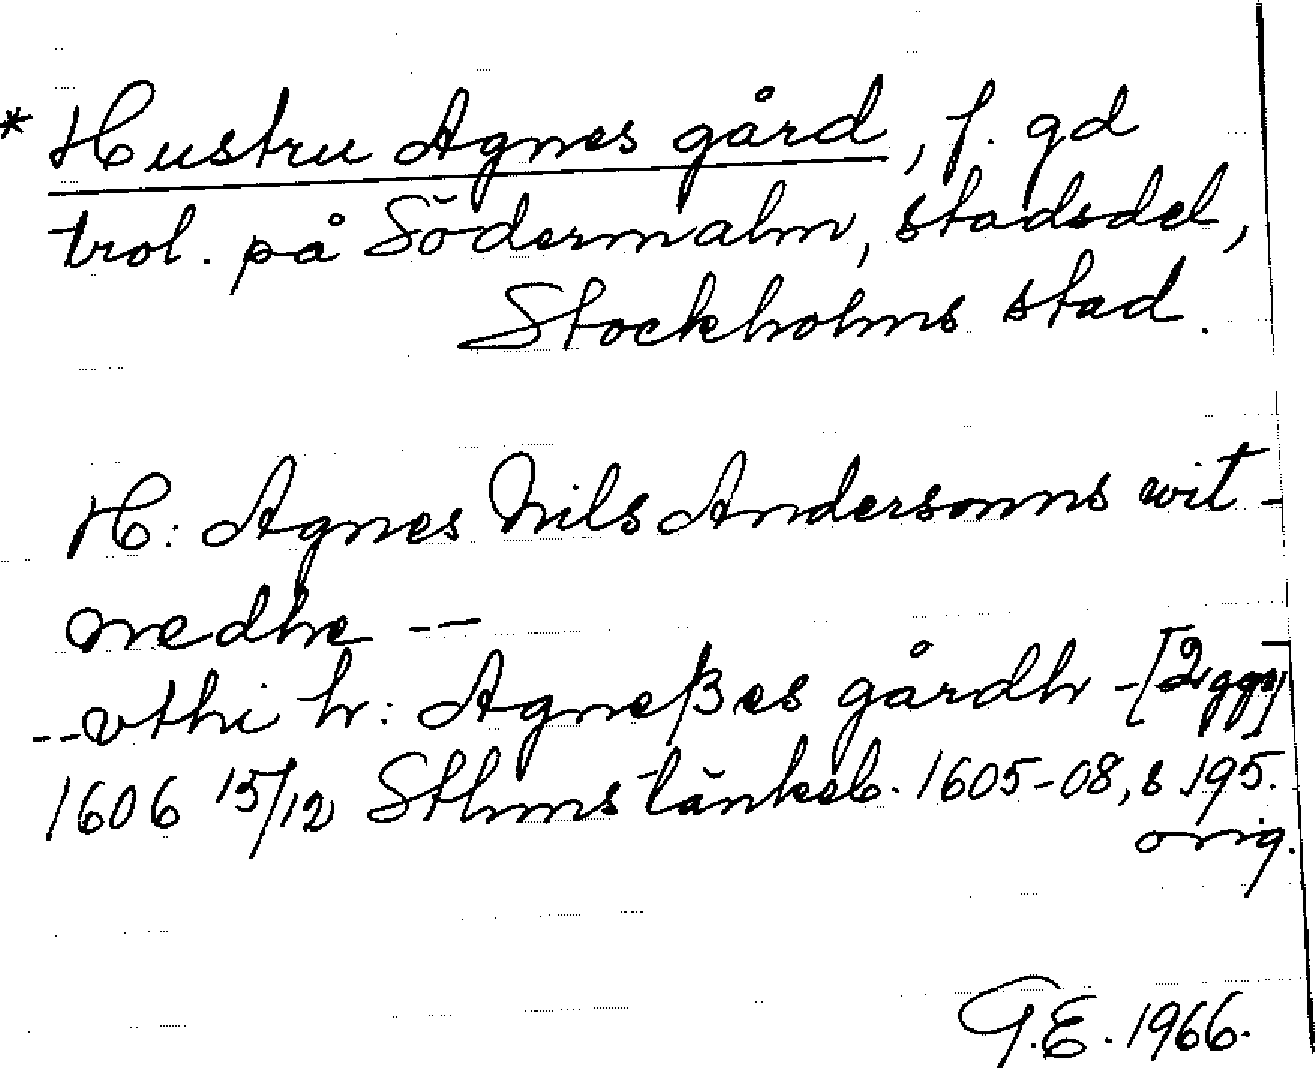 * Hustru Agnes gård, f. gd
trol. på Södermalm, stadsdel,
Stockholms stad.
H: Agnes Nils Andersonns wit-
nedhe --
--vthi h: Agneßes gårdh -[2 ggr]
1606 15/12 Sthms tänkeb. 1605-08, s 195.
orig.
G.E. 1966.